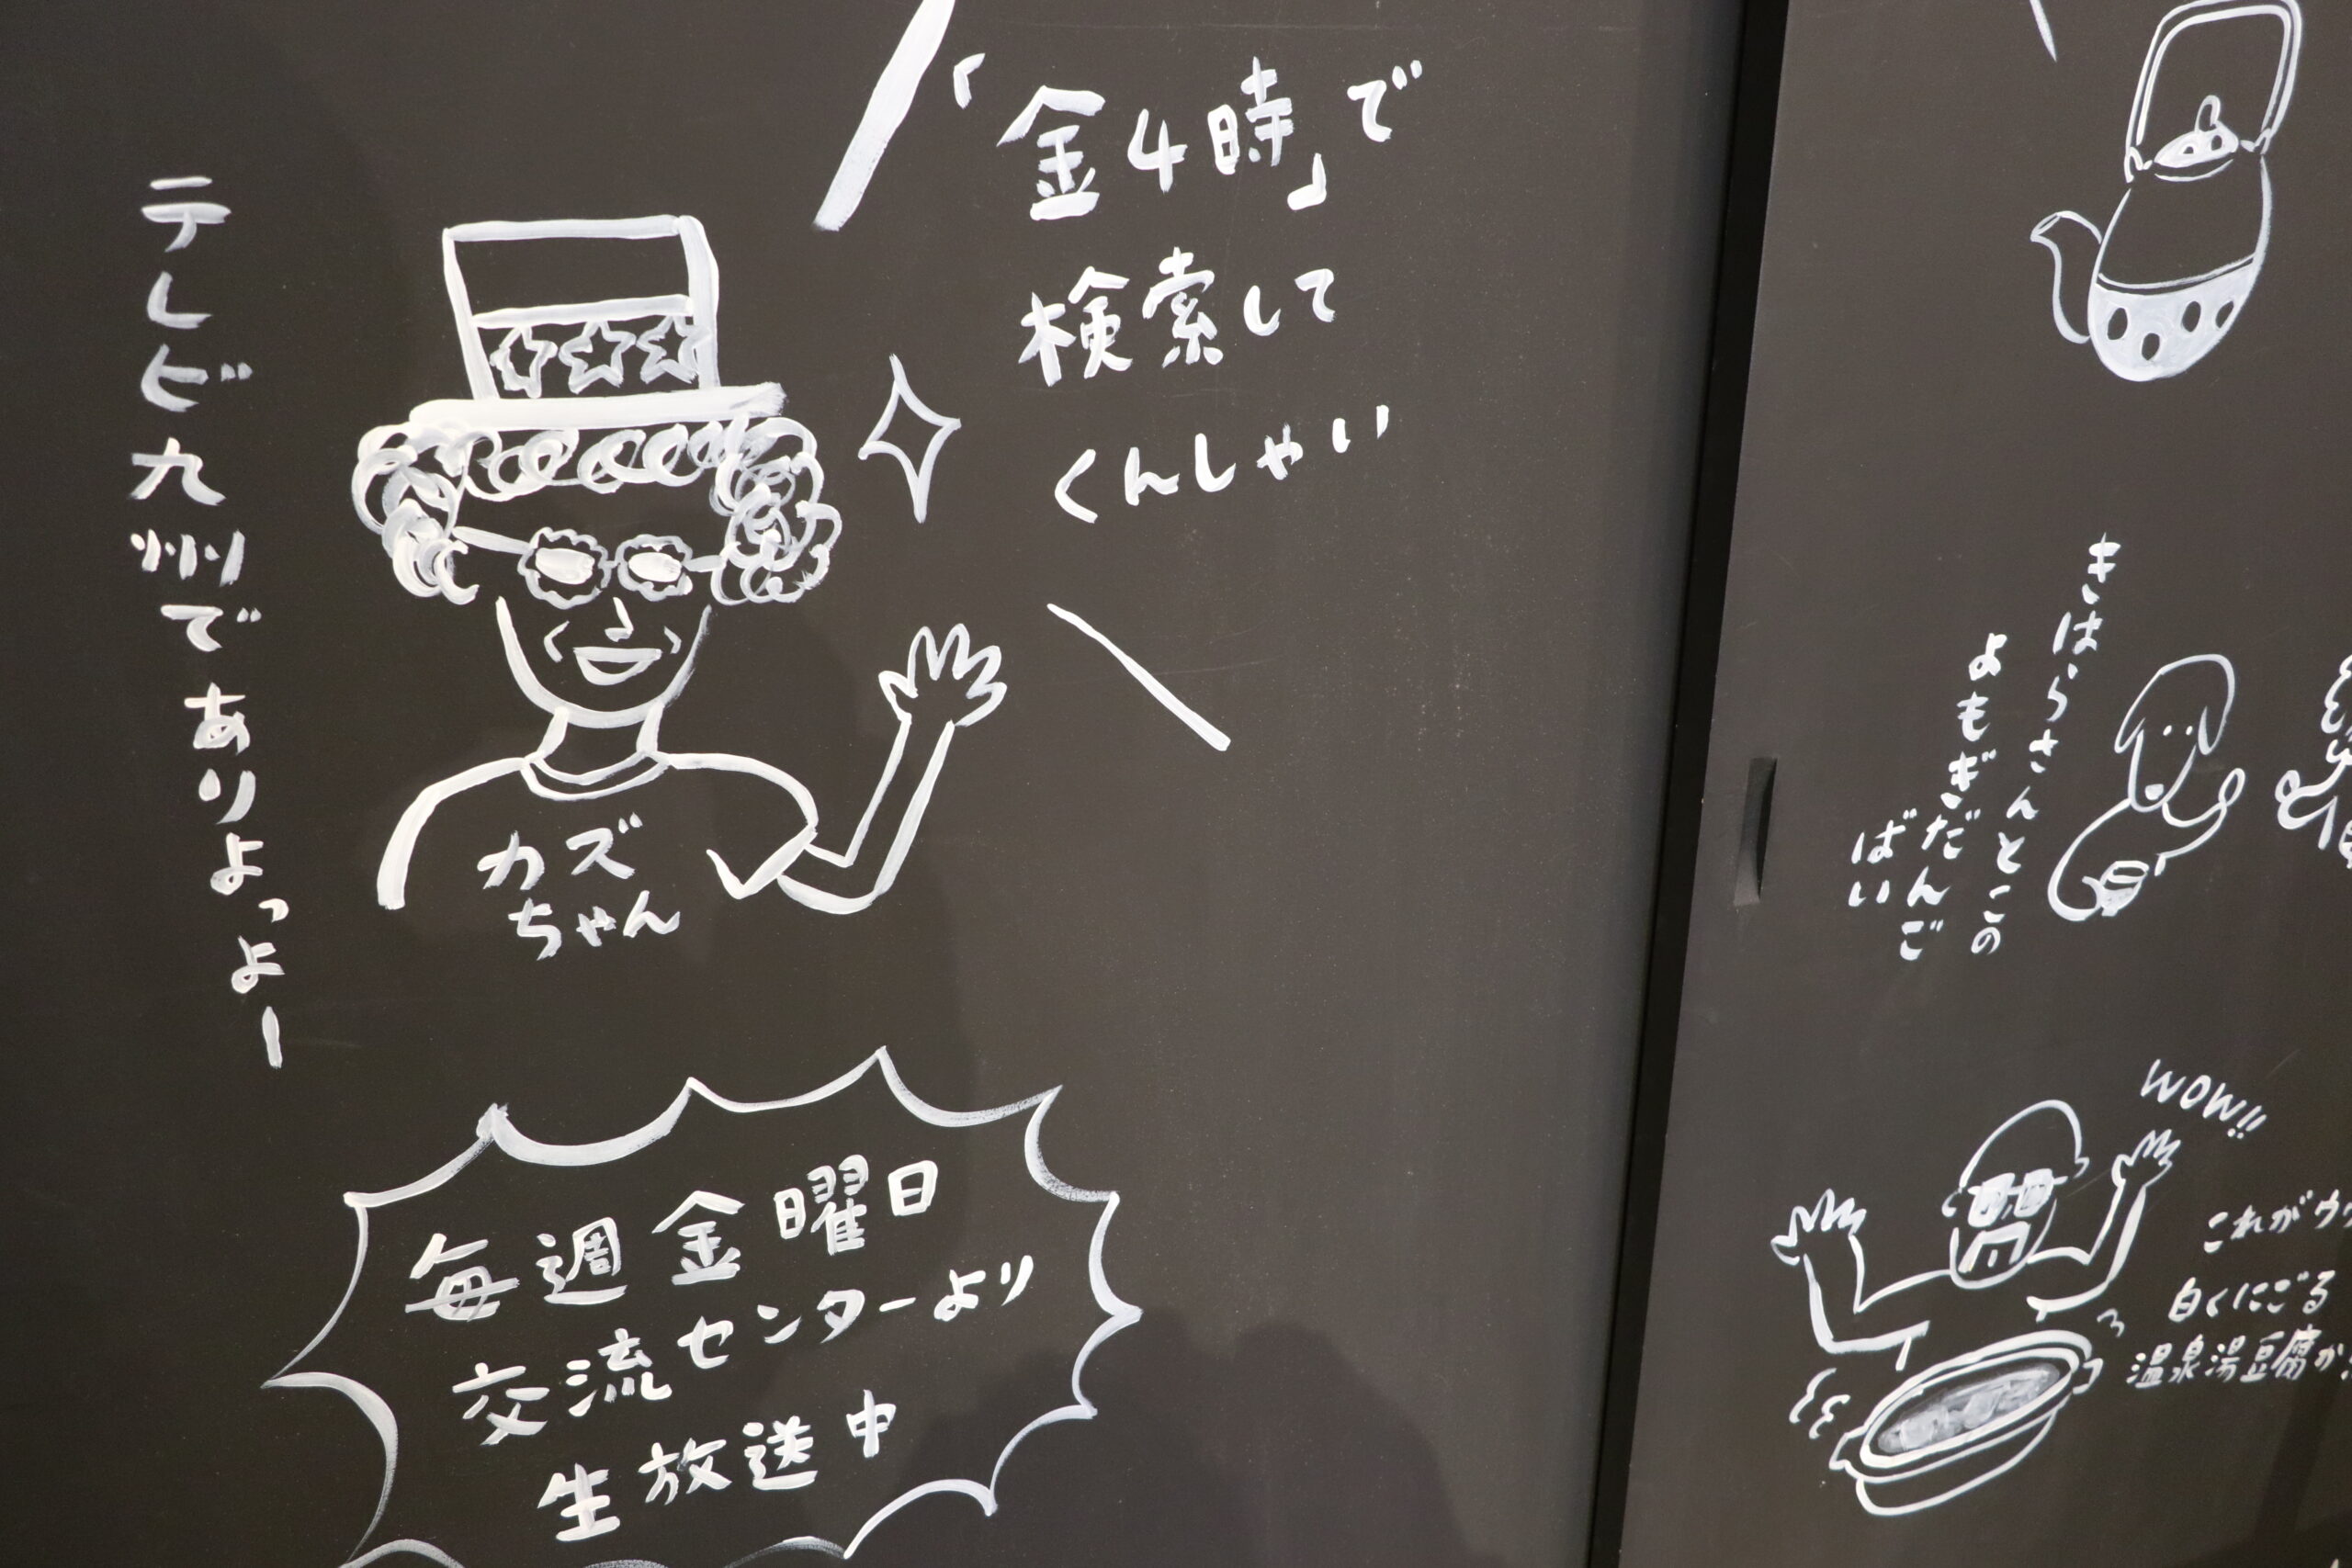 「金4時」で
検索して
くんしゃい
テレビ九州でありよっよー
カズ
ちゃん
毎週金曜日
交流センターより
生放送中
きはらさんとこの
よもぎだんご
ばい
WOW!!
これがウ
白くにごる
温泉湯豆腐か